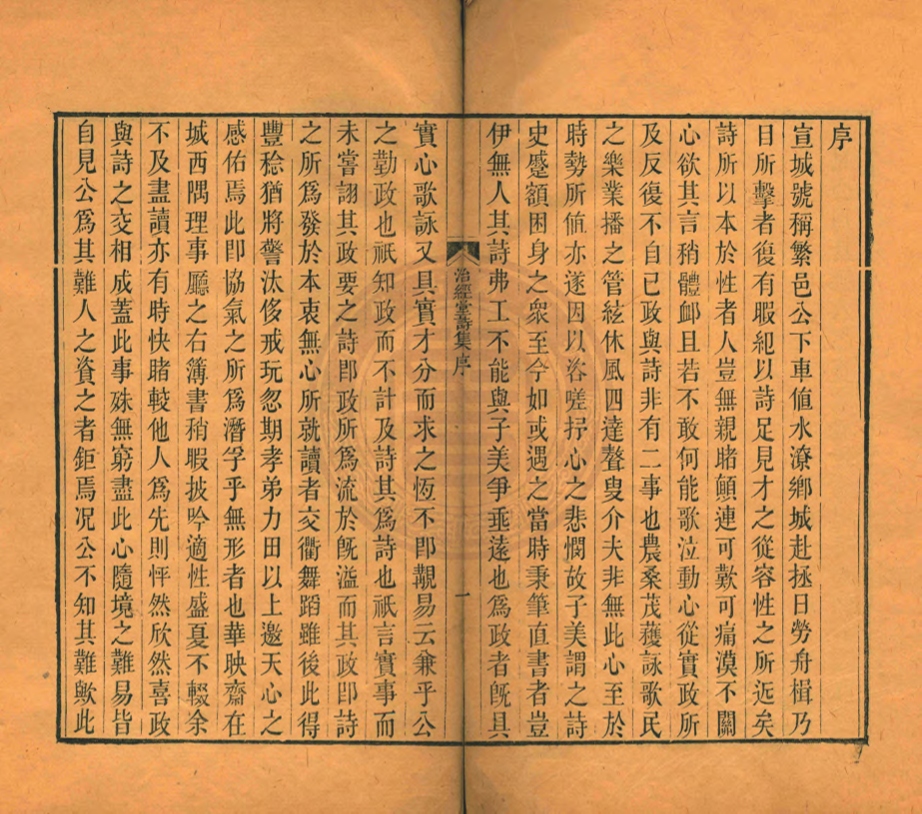 序
宣城號稱繁邑公下車值水潦鄉城赴拯日勞舟楫乃
目所擊者復有暇紀以詩足見才之從容性之所近矣
詩所以本於性者人豈無親睹顛連可歎可痛漠不關
心欲其言稍體卹且若不敢何能歌泣動心從實政所
及反復不自已政與詩非有二事也農桑茂穫詠歌民
之樂業播之管絃休風四達聲叟介夫非無此心至於
時勢所值亦遂因以咨嗟抒心之悲憫故子美謂之詩
史蹙額困身之眾至今如或遇之當時秉筆直書者豈
伊無人其詩弗工不能與子美爭垂遠也為政者既具
治經堂詩集 序 一
實心歌詠又具實才分而求之恆不卽觀易云兼乎公
之勤政也祇知政而不計及詩其為詩也祇言實事而
未嘗詡其政要之詩卽政所為流於旣溢而其政卽詩
之所為發於本衷無心所就讀者交衢舞蹈雖後此得
豐稔猶將警汰侈戒玩忽期孝弟力田以上邀天心之
感佑焉此卽協氣之所為潛孚乎無形者也華映齋在
城西隅理事廳之右簿書稍暇披吟適性盛夏不輟余
不及盡讀亦有時快睹較他人為先則怦然欣然喜政
與詩之交相成蓋此事殊無窮盡此心隨境之難易皆
自見公為其難人之資之者鉅焉况公不知其難歟此